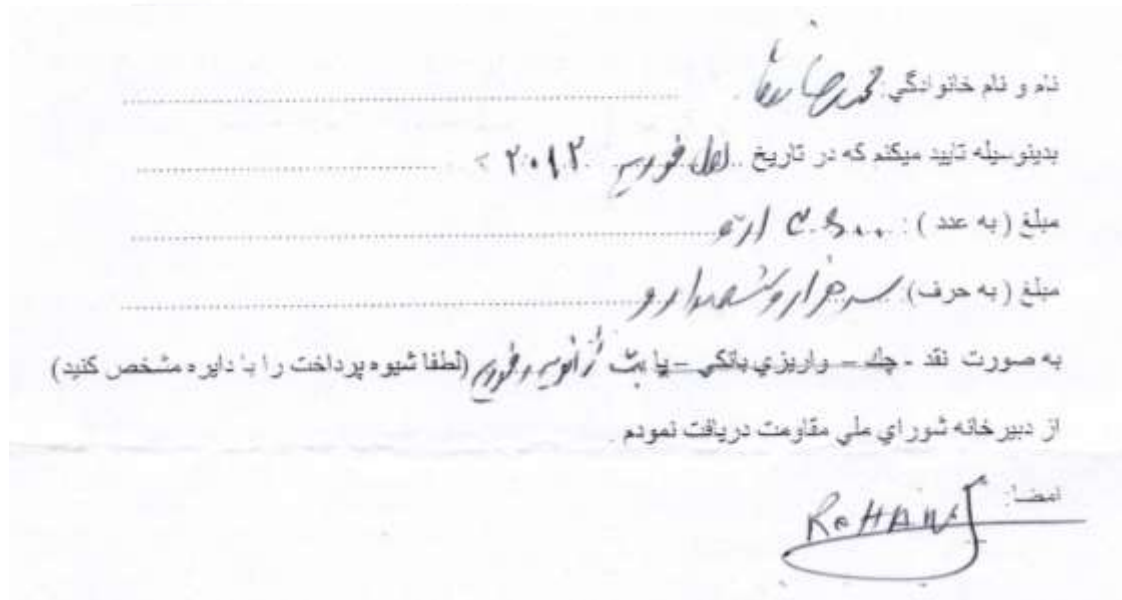 نام و نام خانوادگي: محمدرضا روحانی
بدينوسيله تاييد ميكنم كه در تاريخ .. اول فوریه ۲۰۱۲
مبلغ ( به عدد ) : ۳۶۰۰ ارو
مبلغ ( به حرف) سه هزار و ششصد ارو
به صورت نقد - چك – واريزي بانكي – يا بابت ژانویه و فوریه (لطفا شيوه پرداخت را با دايره مشخص كنيد)
از دبيرخانه شوراي ملي مقاومت دريافت نمودم .
امضا:
ROHANI